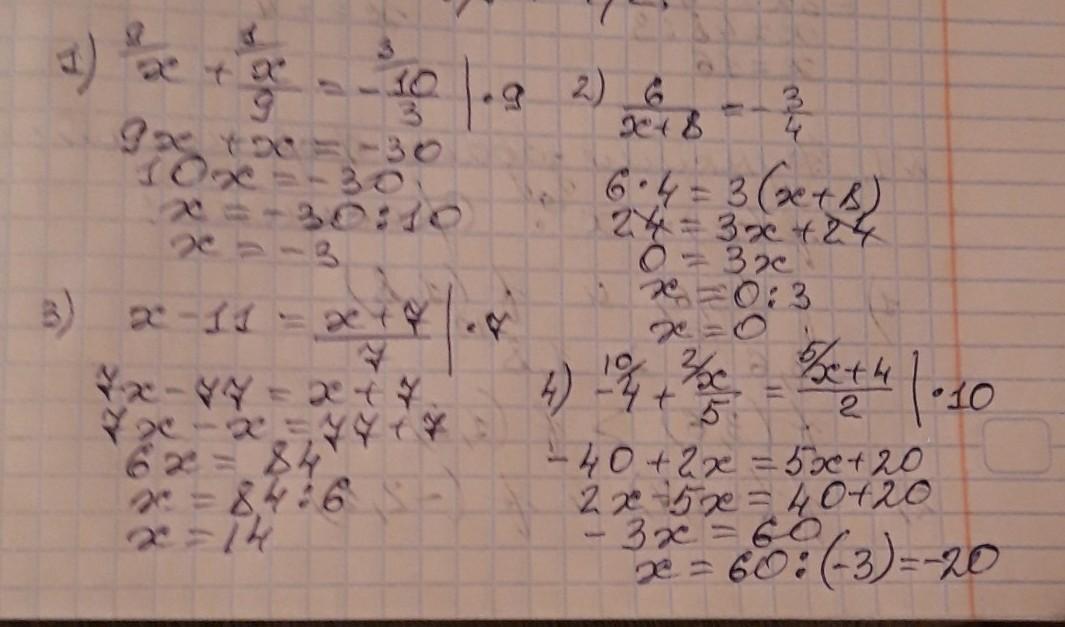 1) 9/x + 1/x/9 = - 3/10/3 | · 9
9x + x = -30
10x = -30
x = -30 : 10
x = -3
2) 6/(x+8) = - 3/4
6 · 4 = 3(x+8)
24 = 3x + 24
0 = 3x
x = 0 : 3
x = 0
3) x - 11 = (x+7)/7 | · 7
7x - 77 = x + 7
7x - x = 77 + 7
6x = 84
x = 84 : 6
x = 14
4) 10/-4 + 2/x/5 = 5/x+4/2 | · 10
-40 + 2x = 5x + 20
2x - 5x = 40 + 20
-3x = 60
x = 60 : (-3) = -20